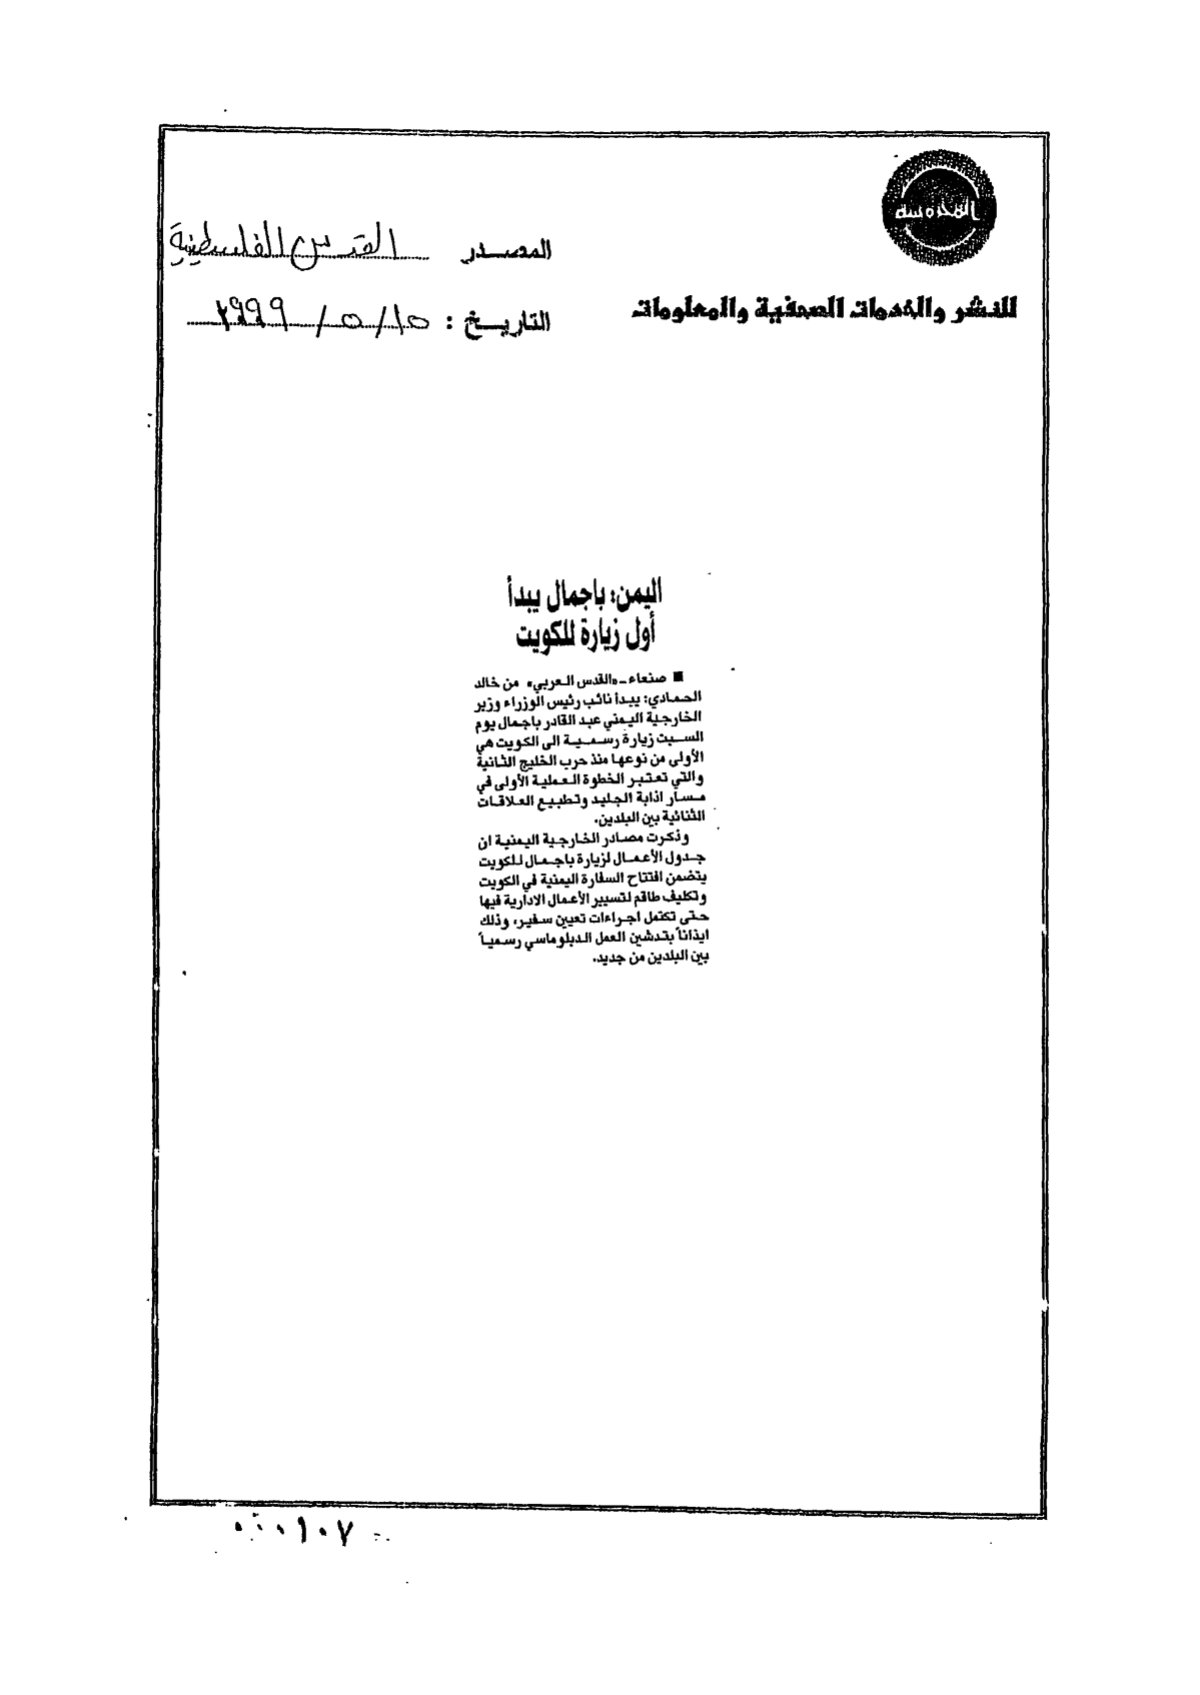 المحروسة
للنشر والخدمات الصحفية والمعلومات
المصدر القدس الفلسطينية
التاريخ : ١٥/٥/١٩٩٩
اليمن: باجمال يبدأ
أول زيارة للكويت
■ صنعاء ـ «القدس العربي» من خالد
الحمادي: يبدأ نائب رئيس الوزراء وزير
الخارجية اليمني عبد القادر باجمال يوم
السبت زيارة رسمية الى الكويت هي
الأولى من نوعها منذ حرب الخليج الثانية
والتي تعتبر الخطوة العملية الأولى في
مسار اذابة الجليد وتطبيع العلاقات
الثنائية بين البلدين.
وذكرت مصادر الخارجية اليمنية ان
جدول الأعمال لزيارة باجمال للكويت
يتضمن افتتاح السفارة اليمنية في الكويت
وتكليف طاقم لتسيير الأعمال الادارية فيها
حتى تكتمل اجراءات تعيين سفير، وذلك
ايذاناً بتدشين العمل الدبلوماسي رسمياً
بين البلدين من جديد.
٠٠٠١٠٧